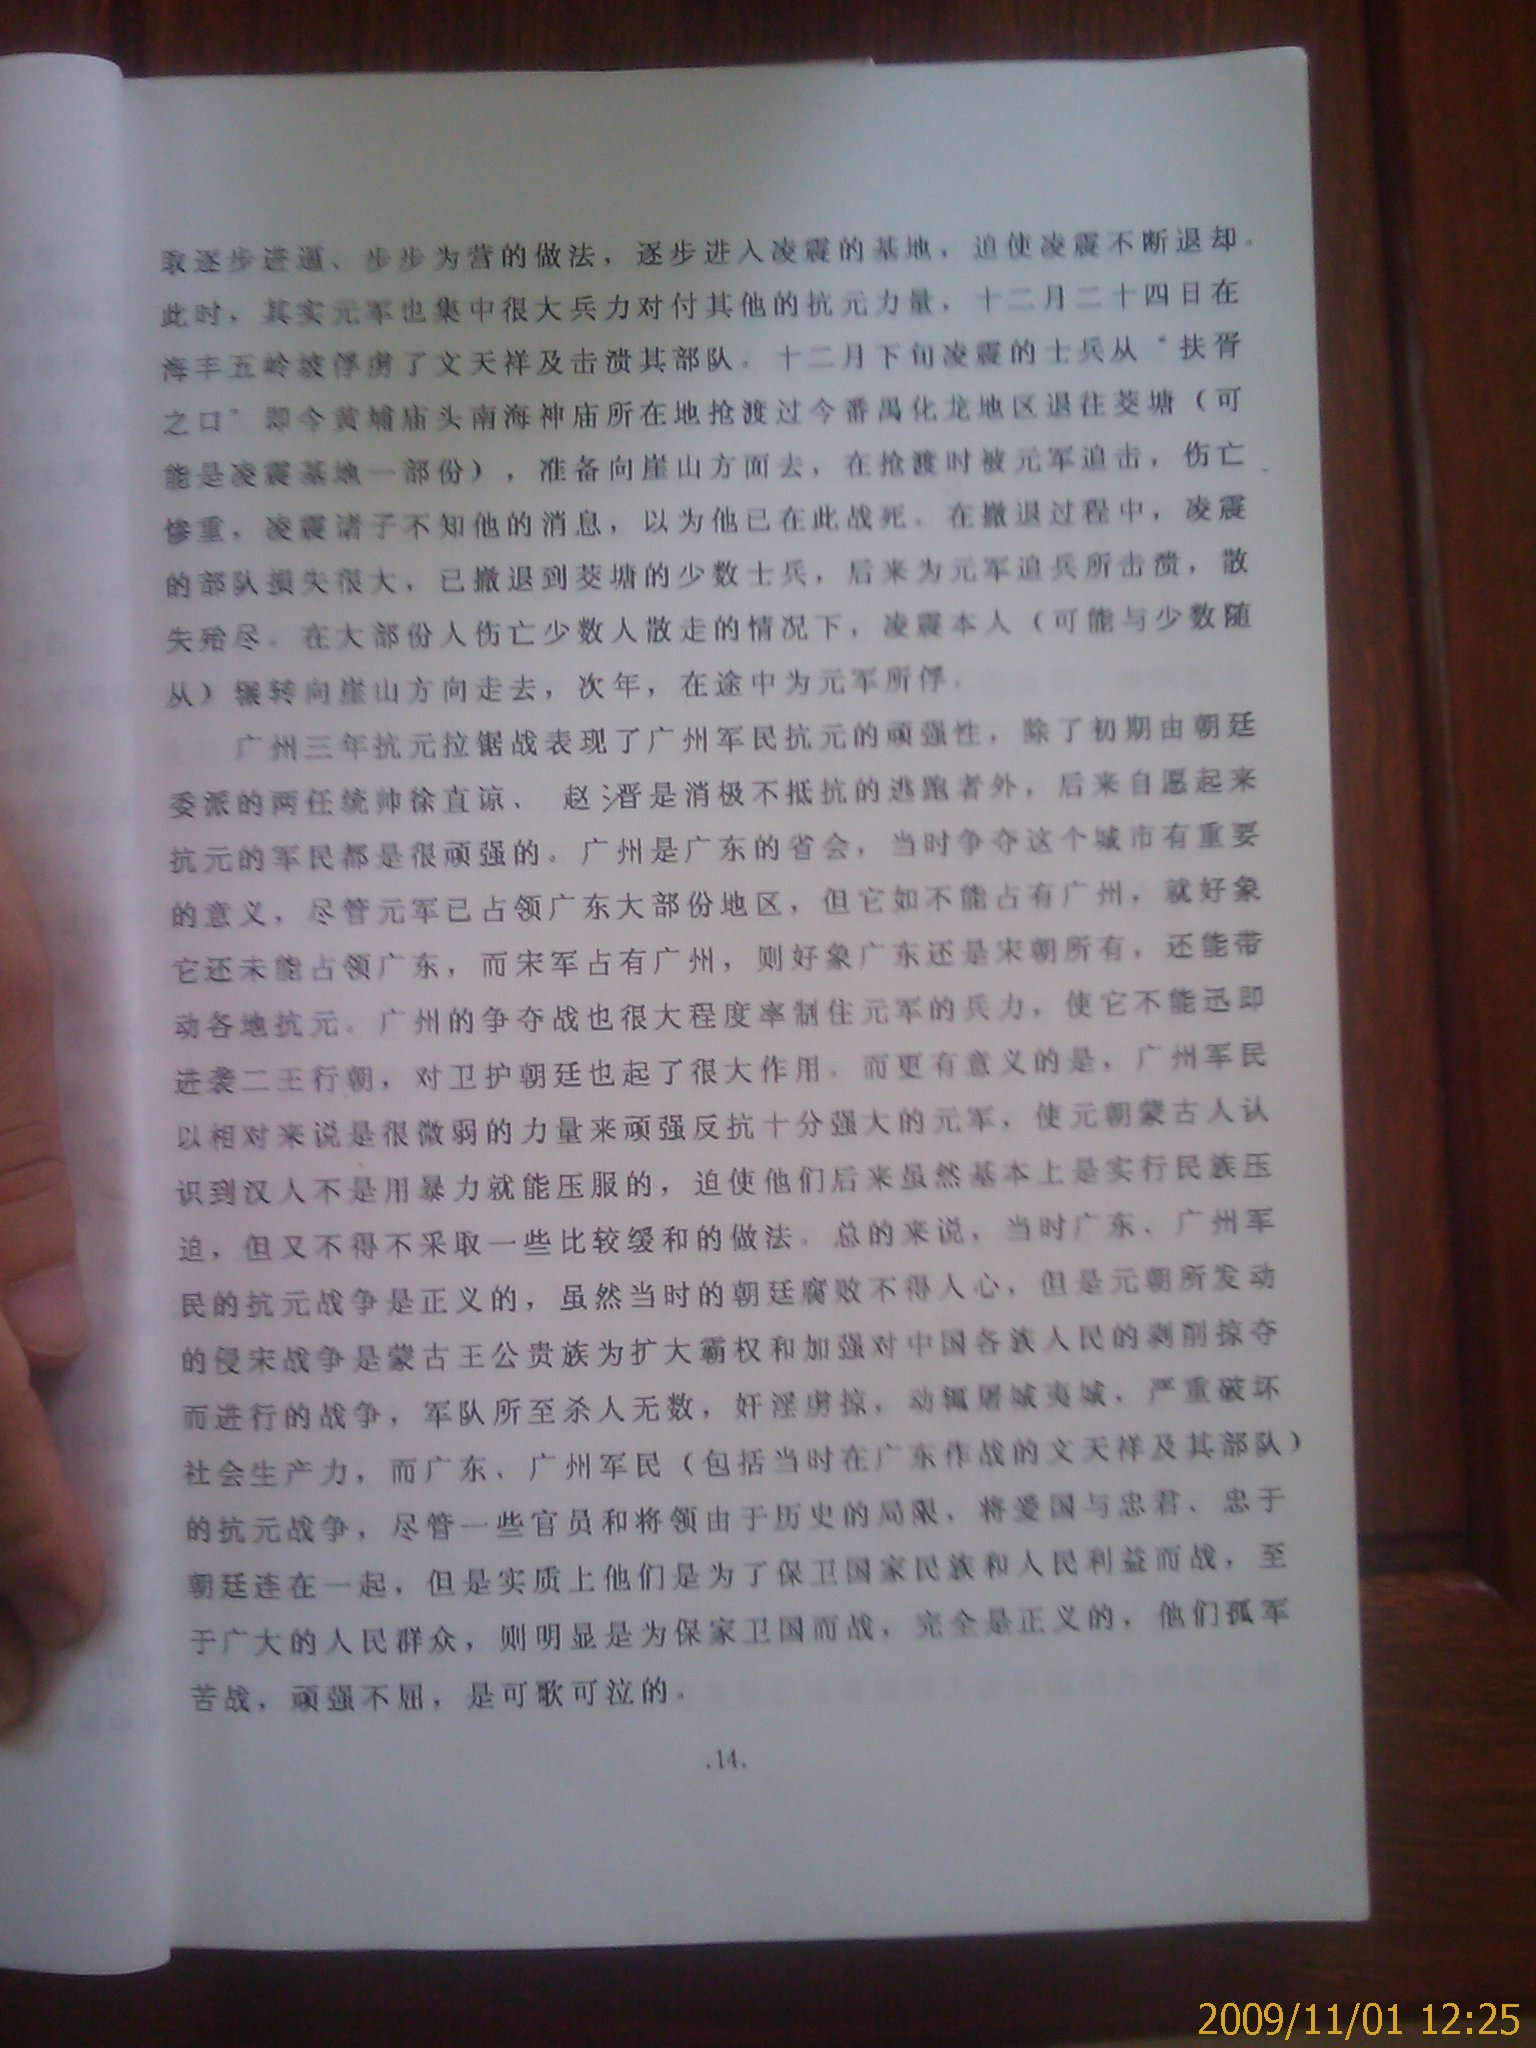 取逐步进逼、步步为营的做法，逐步进入凌震的基地，迫使凌震不断退却。
此时，其实元军也集中很大兵力对付其他的抗元力量，十二月二十四日在
海丰五岭坡俘虏了文天祥及击溃其部队。十二月下旬凌震的士兵从“扶胥
之口”即今黄埔庙头南海神庙所在地抢渡过今番禺化龙地区退往茭塘（可
能是凌震基地一部份），准备向崖山方面去，在抢渡时被元军追击，伤亡
惨重，凌震诸子不知他的消息，以为他已在此战死。在撤退过程中，凌震
的部队损失很大，已撤退到茭塘的少数士兵，后来为元军追兵所击溃，散
失殆尽。在大部份人伤亡少数人散走的情况下，凌震本人（可能与少数随
从）辗转向崖山方向走去，次年，在途中为元军所俘。
广州三年抗元拉锯战表现了广州军民抗元的顽强性，除了初期由朝廷
委派的两任统帅徐直谅、 赵溍是消极不抵抗的逃跑者外，后来自愿起来
抗元的军民都是很顽强的。广州是广东的省会，当时争夺这个城市有重要
的意义，尽管元军已占领广东大部份地区，但它如不能占有广州，就好象
它还未能占领广东，而宋军占有广州，则好象广东还是宋朝所有，还能带
动各地抗元。广州的争夺战也很大程度牵制住元军的兵力，使它不能迅即
进袭二王行朝，对卫护朝廷也起了很大作用。而更有意义的是，广州军民
以相对来说是很微弱的力量来顽强反抗十分强大的元军，使元朝蒙古人认
识到汉人不是用暴力就能压服的，迫使他们后来虽然基本上是实行民族压
迫，但又不得不采取一些比较缓和的做法。总的来说，当时广东、广州军
民的抗元战争是正义的，虽然当时的朝廷腐败不得人心，但是元朝所发动
的侵宋战争是蒙古王公贵族为扩大霸权和加强对中国各族人民的剥削掠夺
而进行的战争，军队所至杀人无数，奸淫虏掠，动辄屠城夷城，严重破坏
社会生产力，而广东、广州军民（包括当时在广东作战的文天祥及其部队）
的抗元战争，尽管一些官员和将领由于历史的局限，将爱国与忠君、忠于
朝廷连在一起，但是实质上他们是为了保卫国家民族和人民利益而战，至
于广大的人民群众，则明显是为保家卫国而战，完全是正义的，他们孤军
苦战，顽强不屈，是可歌可泣的。
.14.
2009/11/01 12:25